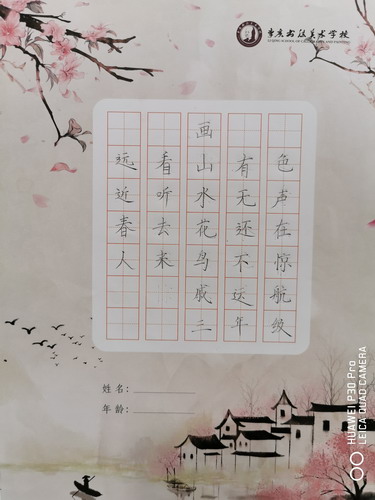 书法美术学校
SCHOOL OF CALLIGRAPHY AND PAINTING
画
远看山有色
近听水无声
春去花还在
人来鸟不惊
戚运航
三年级
姓名:
年龄:
HUAWEI P30 Pro
LEICA QUAD CAMERA